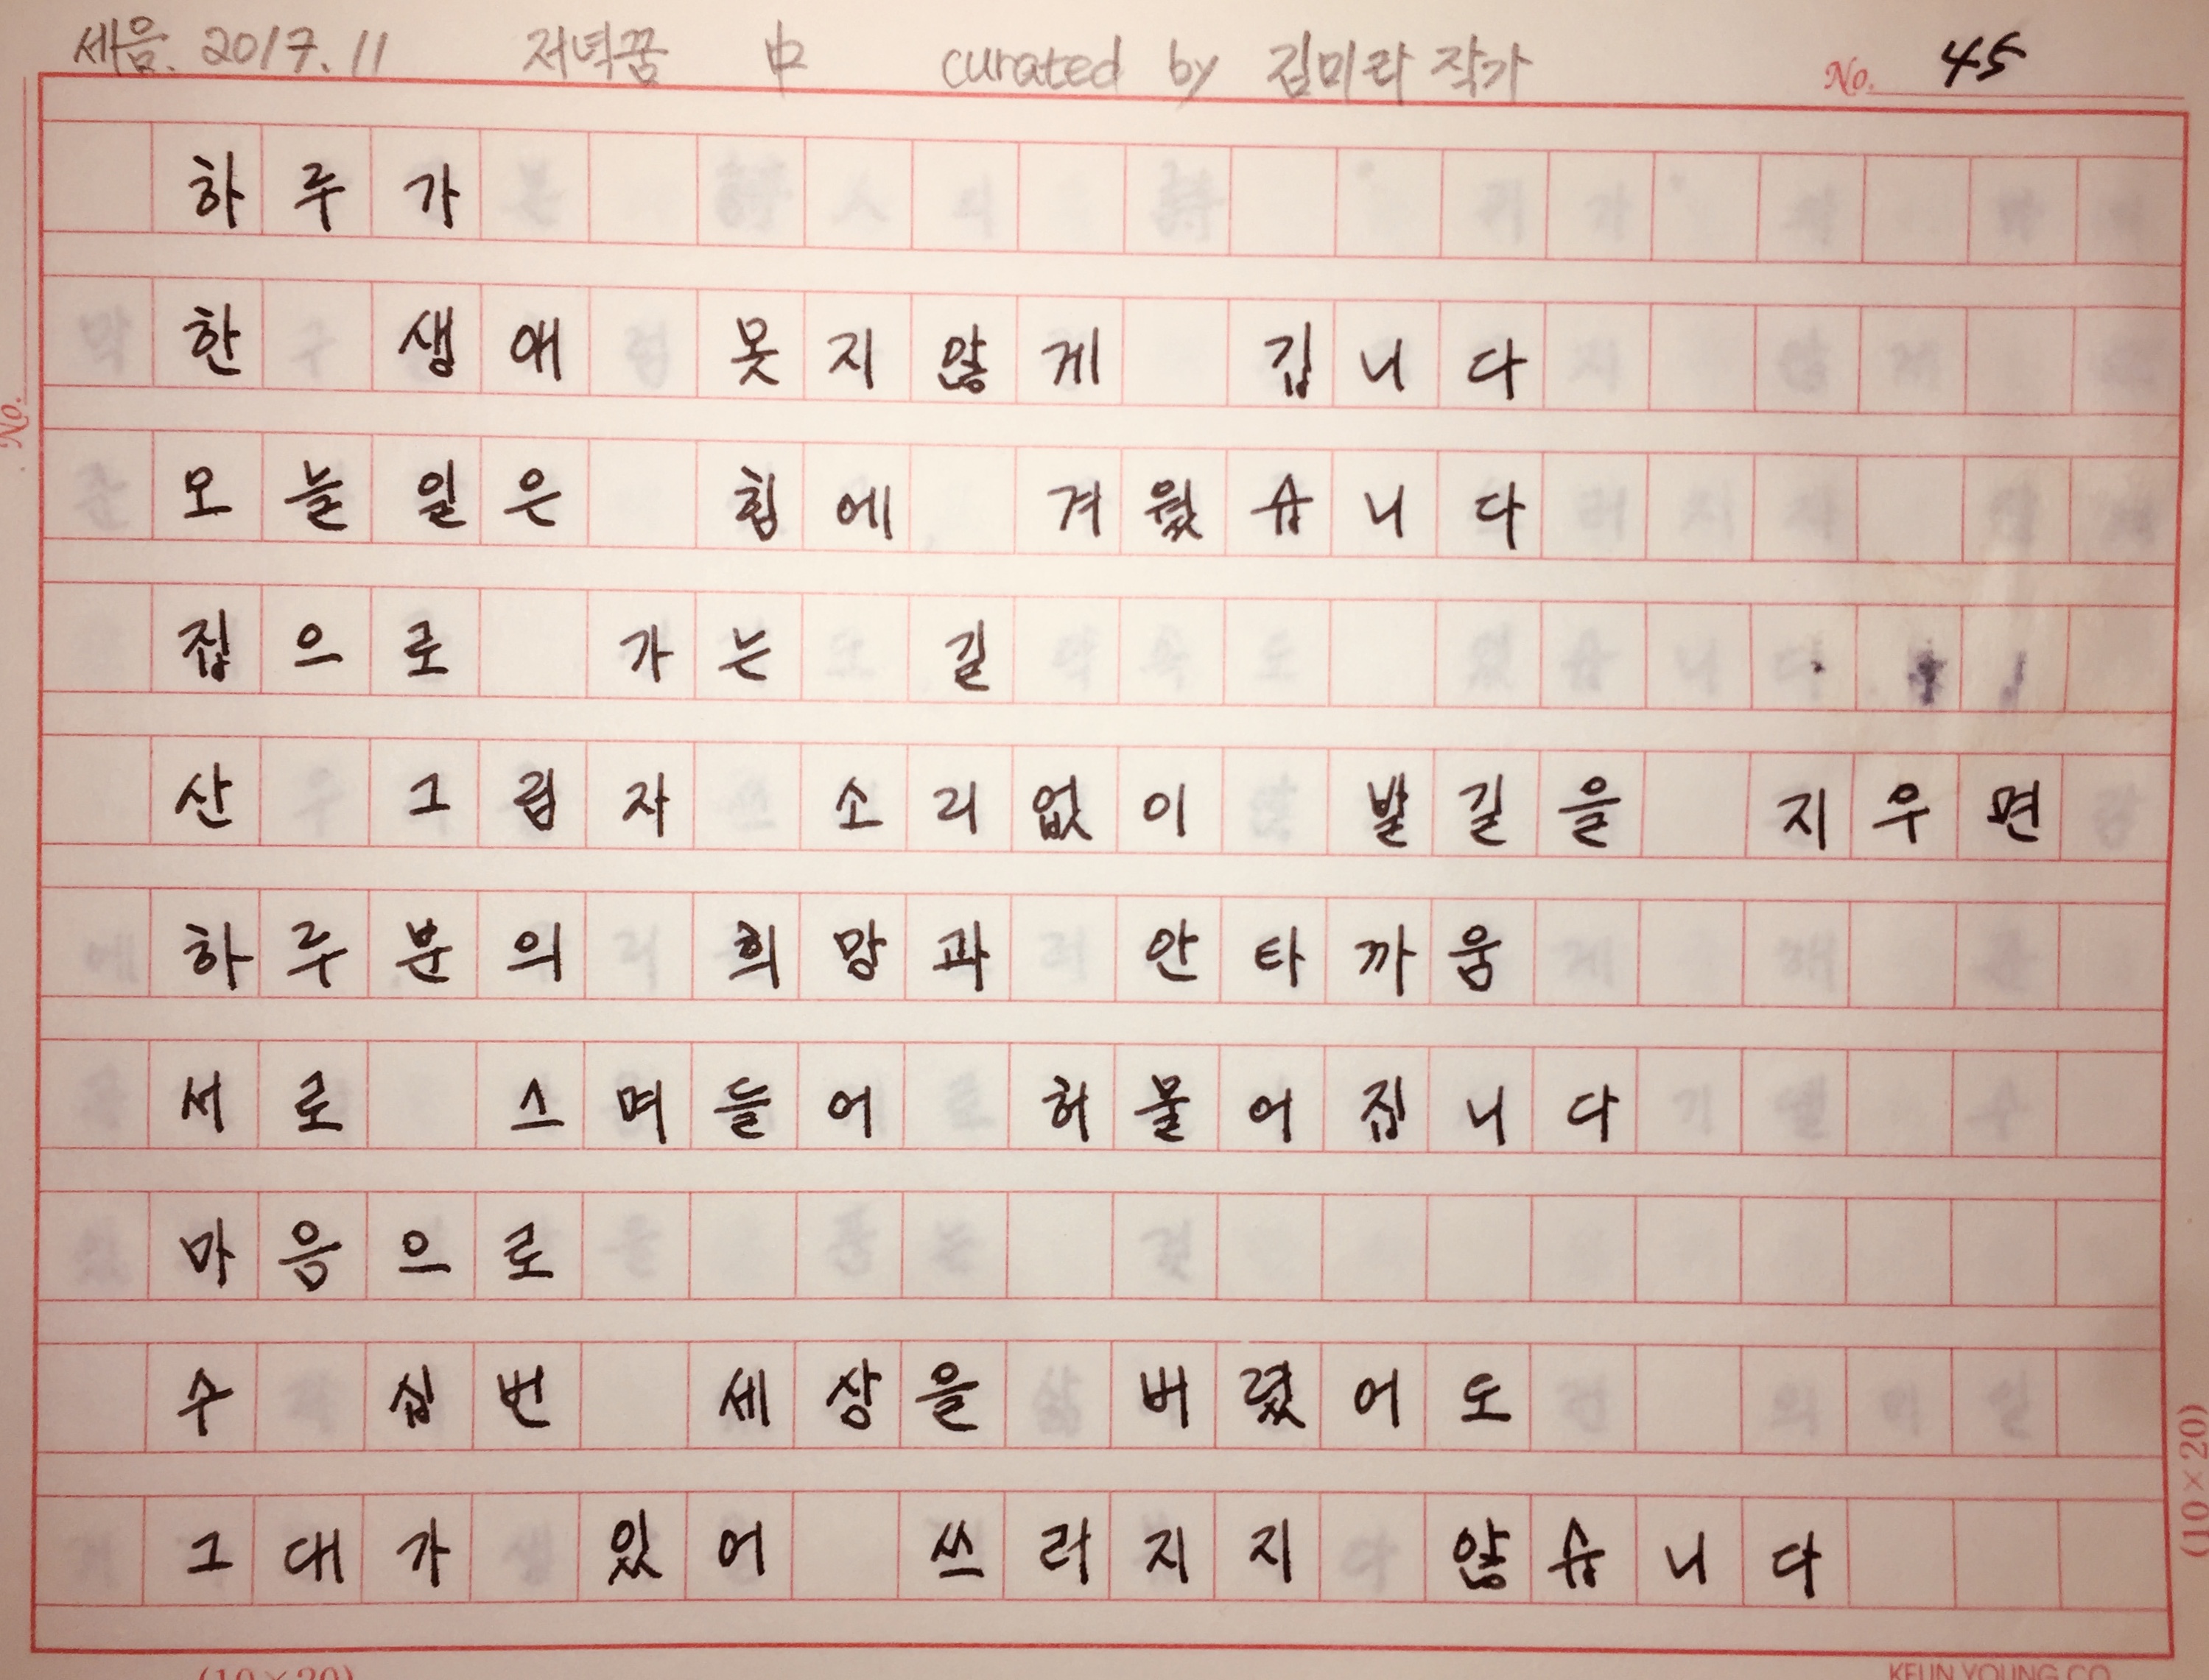 세음. 2017. 11 저녁꿈 中 curated by 김미라 작가 No. 45
하루가
한 생애 못지않게 깁니다
오늘 일은 힘에 겨웠습니다
집으로 가는 길
산 그림자 소리없이 발길을 지우면
하루분의 희망과 안타까움
서로 스며들어 허물어집니다
마음으로
수 십번 세상을 버렸어도
그대가 있어 쓰러지지 않습니다
No.
(10×20)
(10×20)
KEUN YOUNG CO.